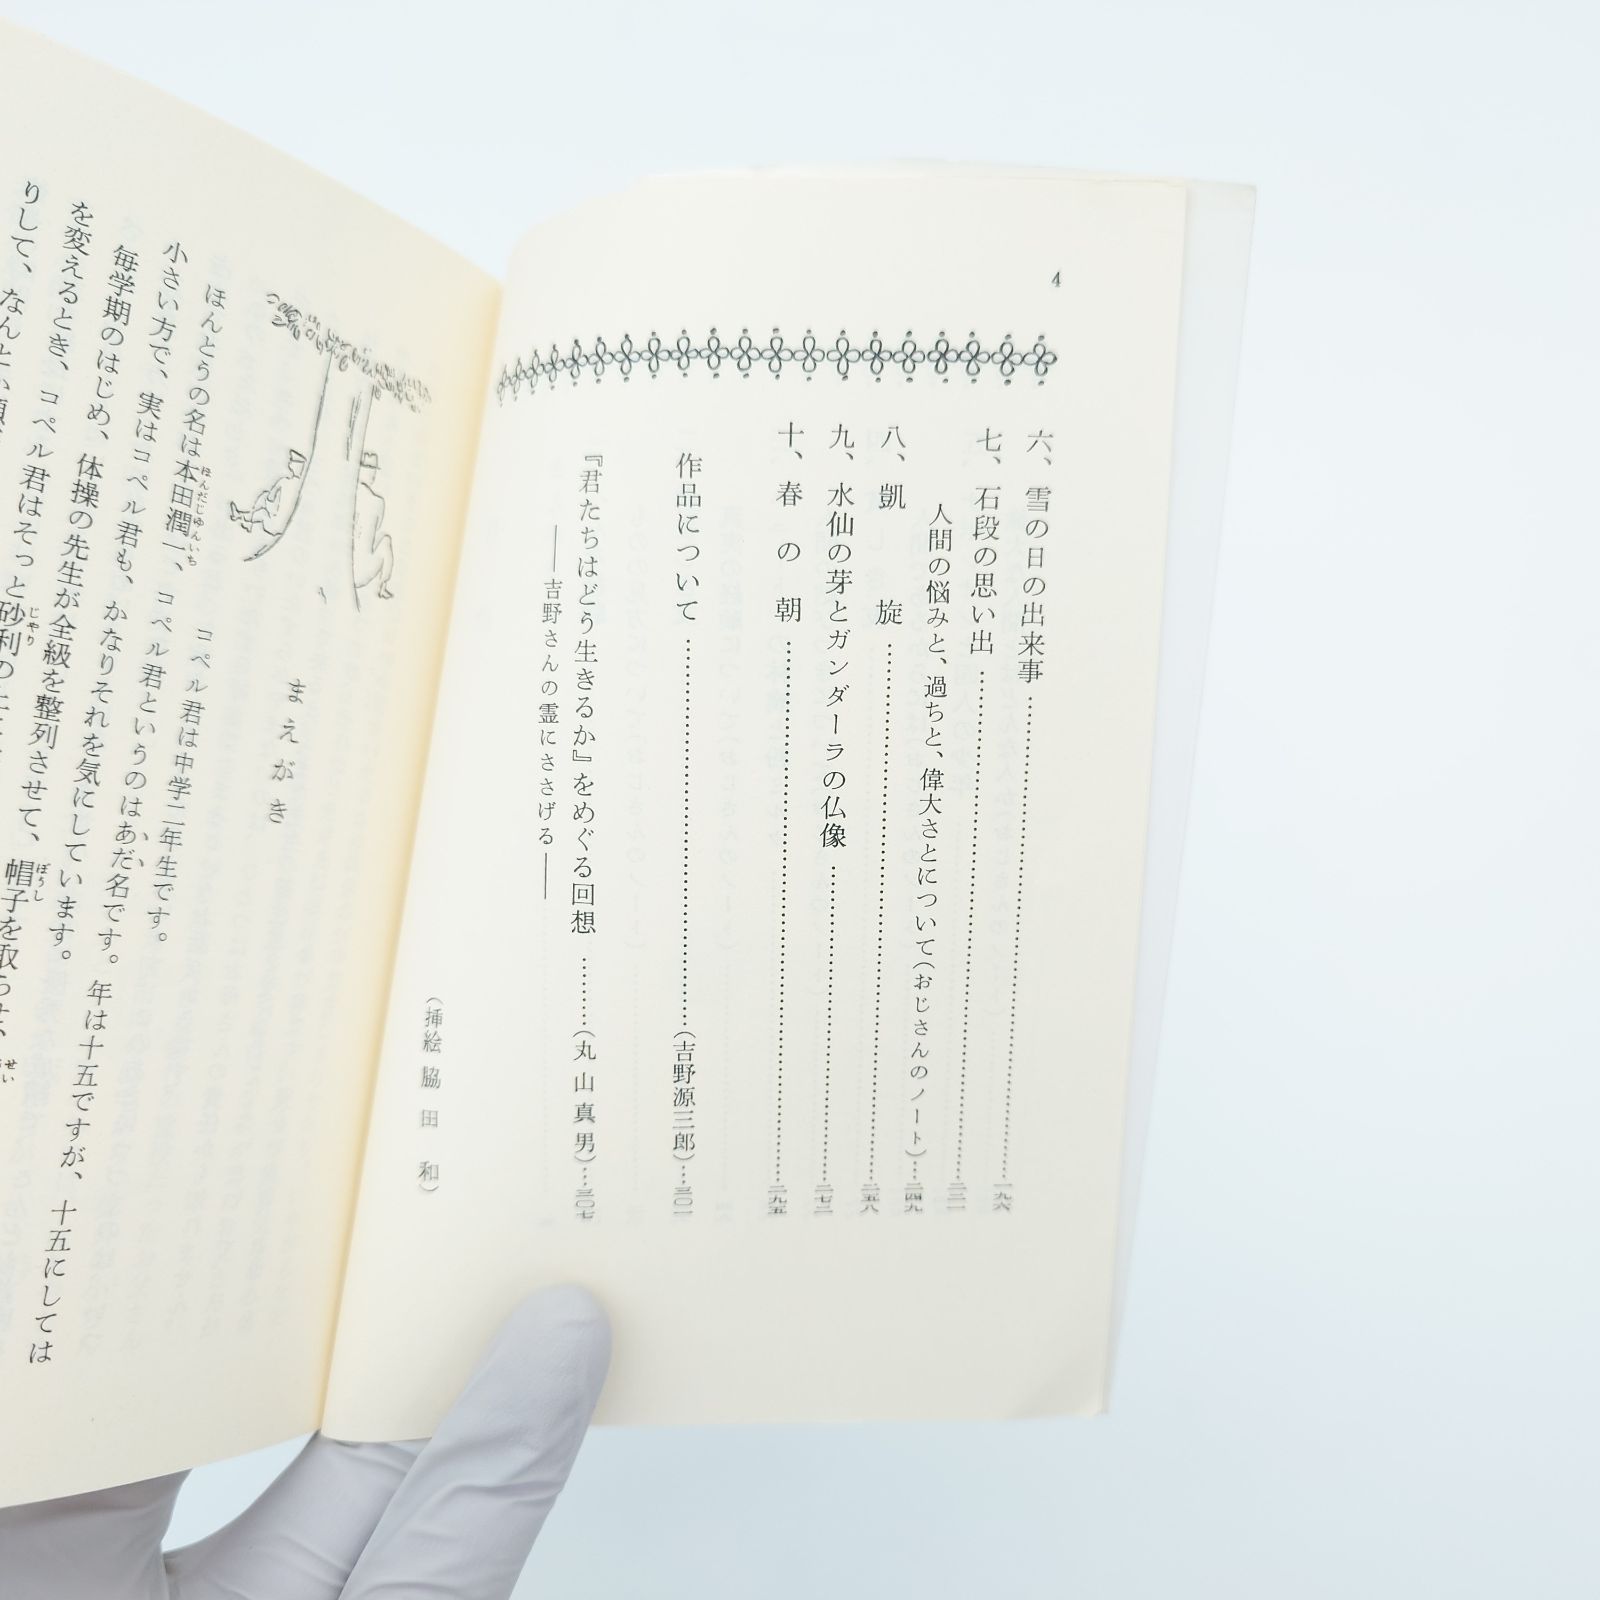 4
六、雪の日の出来事……一九六
七、石段の思い出……二三一
人間の悩みと、過ちと、偉大さとについて(おじさんのノート)…二四九
八、凱旋……二五八
九、水仙の芽とガンダーラの仏像……二七三
十、春の朝……二九五
作品について……(吉野源三郎)…三〇一
『君たちはどう生きるか』をめぐる回想……(丸山真男)…三〇七
――吉野さんの霊にささげる――
(挿絵 脇田和)
まえがき
コペル君は中学二年生です。
ほんとうの名は本田潤一、コペル君というのはあだ名です。年は十五ですが、十五にしては
小さい方で、実はコペル君も、かなりそれを気にしています。
毎学期のはじめ、体操の先生が全級を整列させて、帽子を取らせ、
を変えるとき、コペル君はそっと砂利の
りして、なんと